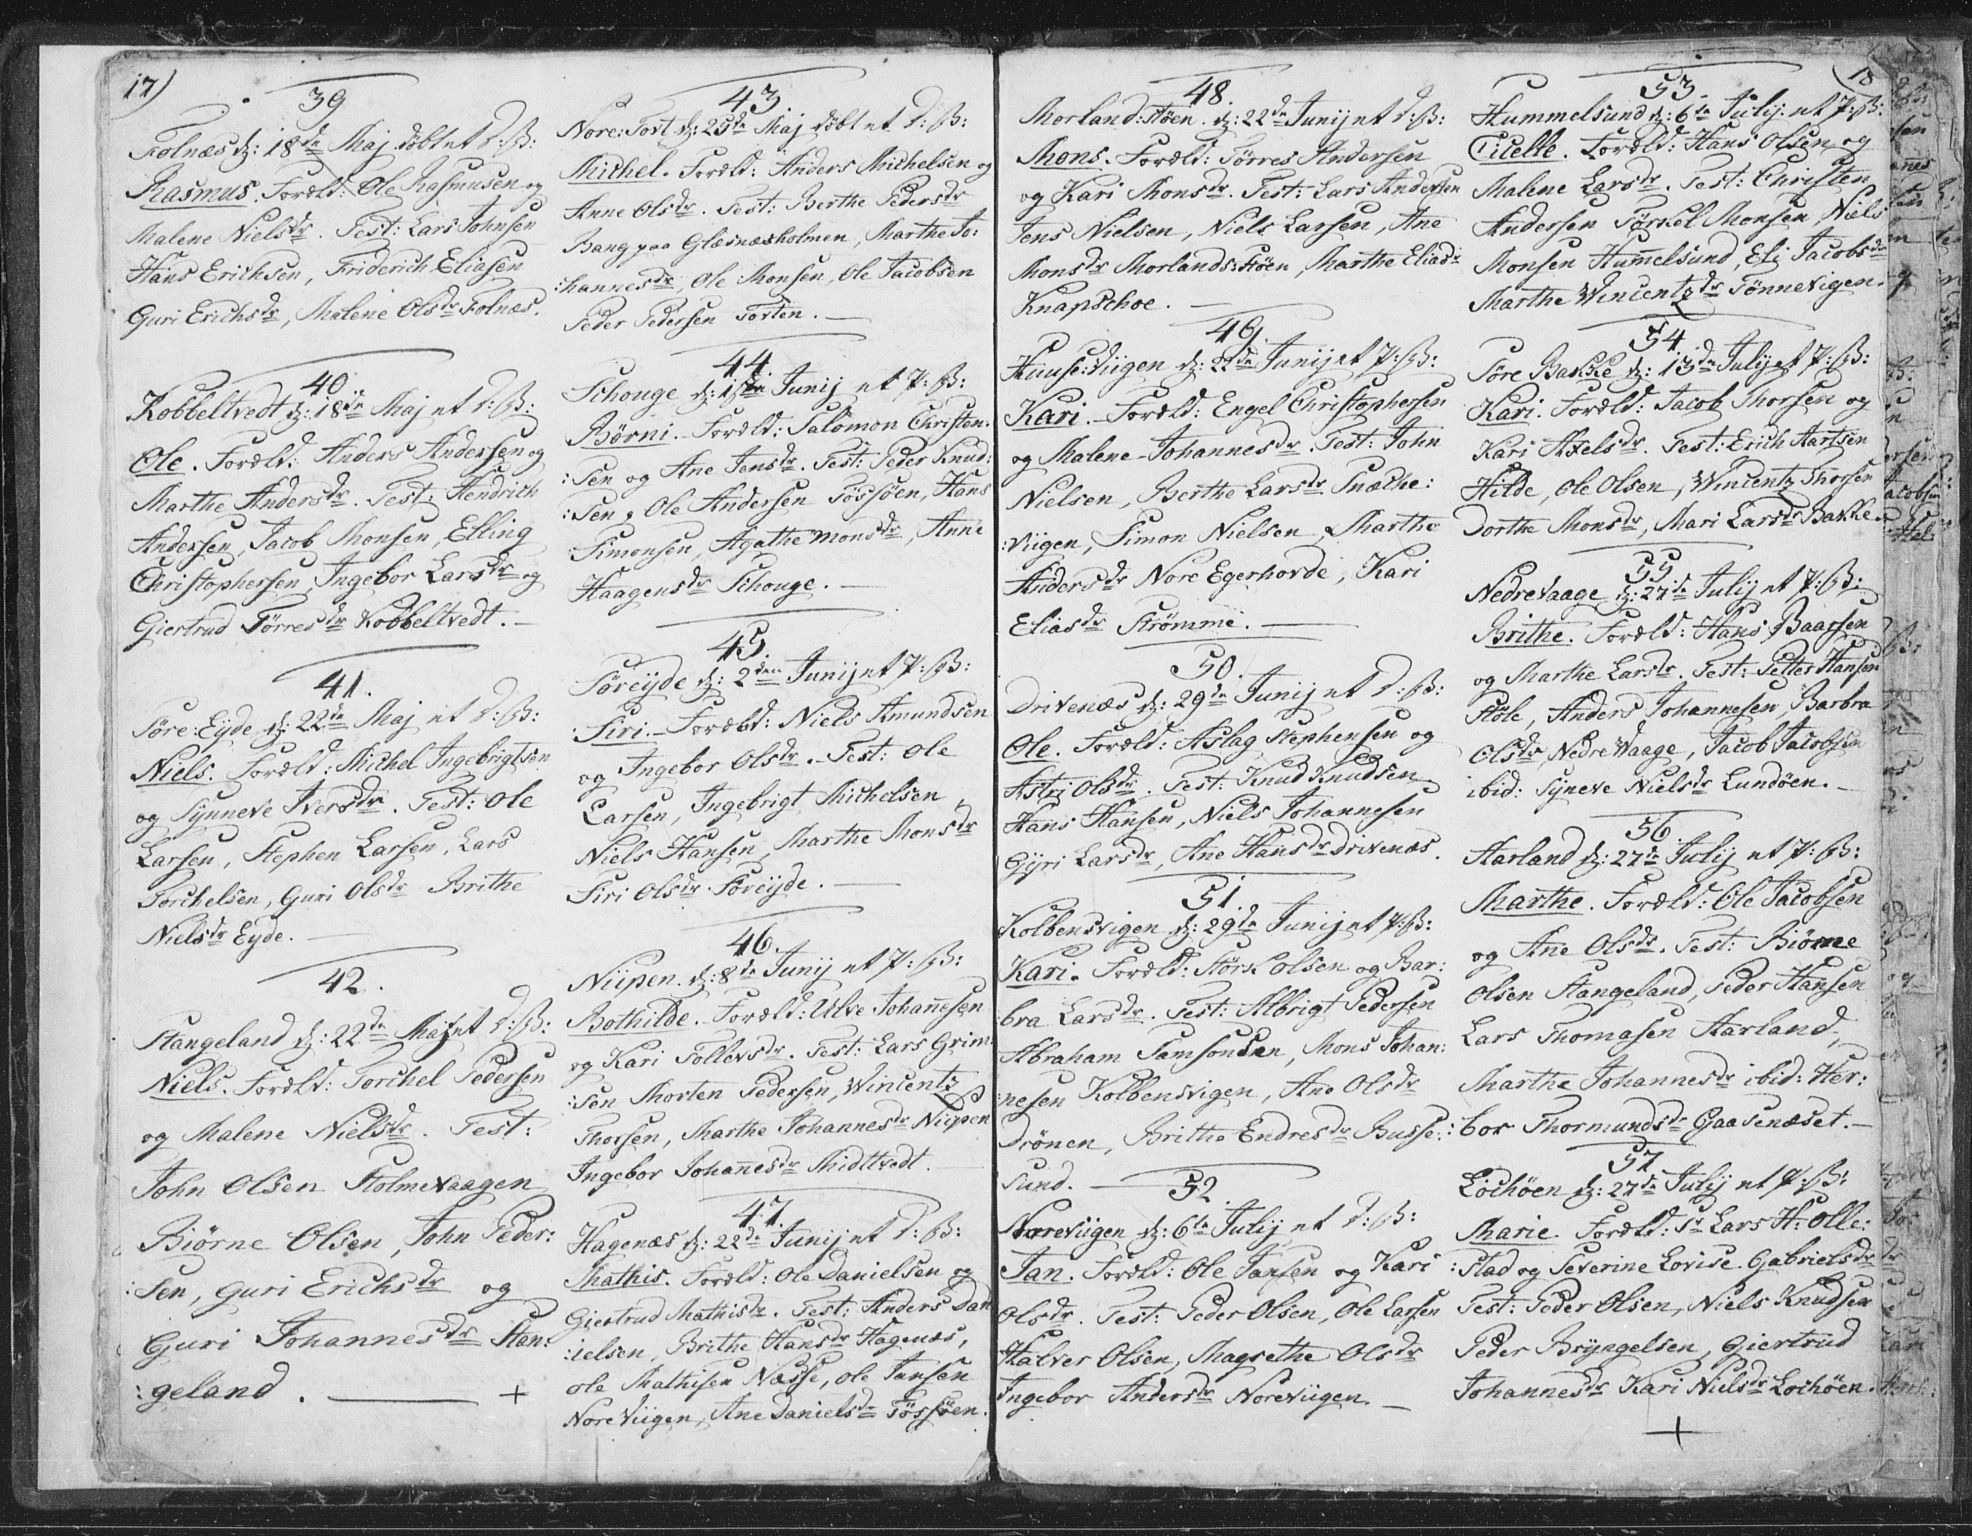 17)
39
Folnæs d: 18de Maj döbt et d: B:
Rasmus. Foræld: Ole Rasmusen og
Malene Nielsdr. Test: Lars Johnsen
Hans Erichsen, Friderich Eliasen
Guri Erichsdr, Malene Olsdr Folnæs.
40.
Kobbeltvedt d: 18de Maj et d: B:
Ole. Foræld: Anders Andersen og
Marthe Andersdr. Test: Hendrich
Andersen, Jacob Monsen, Elling
Christophersen, Ingebor Larsdr og
Giertrud Törresdr Kobbeltvedt. —
41.
Söre: Eyde d: 22de Maj et d: B:
Niels. Foræld: Michel Ingebrigtsen
og Synneve Iversdr. Test: Ole
Larsen, Stephen Larsen, Lars
Torchelsen, Guri Olsdr Brithe
Nielsdr Eyde. —
42.
Stangeland d: 22de Maj et d: B:
Niels. Foræld: Torchel Pedersen
og Malene Nielsdr. Test:
John Olsen Stolmevaagen
Biörne Olsen, John Peder:
:sen, Guri Erichsdr og
Guri Johannesdr Stan:
:geland. — +
43.
Nore: Tort d: 25de Maj döbt et d: B:
Michel. Foræld: Anders Michelsen og
Anne Olsdr. Test: Berthe Pedersdr
Bang paa Glæsnæsholmen, Marthe Jo:
:hannesdr, Ole Monsen, Ole Jacobsen
Peder Pedersen Torten. —
44.
Schouge d: 1ste Junij et P: B:
Börni. Foræld: Salomon Christen:
:sen og Ane Jensdr. Test: Peder Knud:
:sen, Ole Andersen Tössöen, Hans
Simonsen, Agathe Monsdr, Anne
Haagensdr Schouge. —
45.
Söreyde d: 2den Junij et P: B:
Siri. Foræld: Niels Amundsen
og Ingebor Olsdr. Test: Ole
Larsen, Ingebrigt Michelsen,
Niels Hansen, Marthe Monsdr
Siri Olsdr Söreyde. —
46.
Niipen. d: 8de Junij et P: B:
Bothilde. Foræld: Ulve Johannesen
og Kari Tollevsdr. Test: Lars Grim:
:sen Morten Pedersen, Wincentz
Thorsen, Marthe Johannesdr Niipen
Ingebor Johannesdr Midttvedt.
47.
Hagenæs d: 22de Junij et d: B:
Mathis. Foræld: Ole Danielsen og
Giertrud Mathisdr. Test: Anders Dan
:ielsen, Brithe Hansdr Hagenæs,
Ole Mathisen Næsse, Ole Jansen
Nore Viigen, Ane Danielsdr Tössöen.
18
48.
Morland: Stöen. d: 22de Junij et d: B:
Mons. Foræld: Törres Andersen
og Kari Monsdr. Test: Lars Andersen
Jens Nielsen, Niels Larsen, Ane
Monsdr Morlands: Stöen, Marthe Eliadr
Knapschoe. —
49.
Huuse: Viigen d: 22de Junij et P: B:
Kari. Foræld: Engel Christophersen
og Malene Johannesdr. Test: John
Nielsen, Berthe Larsdr Snæche:
:viigen, Simon Nielsen, Marthe
Andersdr Nore Egerhovde, Kari
Eliasdr Strömme. —
50.
Drivenæs d: 29de Junij et d: B:
Ole. Foræld: Aslag Stephensen og
Astri Olsdr. Test: Knud Knudsen
Hans Hansen, Niels Johannesen
Gÿri Larsdr, Ane Hansdr Drivenæs.
51.
Kolbensvigen d: 29de Junij et P: B:
Kari. Foræld: Störk Olsen og Bar:
bra Larsdr. Test: Albrigt Pedersen
Abraham Samsonsen, Mons Johan:
:nesen Kolbensvigen, Ane Olsdr
Drönen, Brithe Endresdr Busse:
sund. —
52.
Noreviigen d: 6te Julij et d: B:
Jan. Foræld: Ole Jansen og Kari
Olsdr. Test: Peder Olsen, Ole Larsen
Halver Olsen, Magrethe Olsdr
Ingebor Andersdr Noreviigen. —
53.
Hummelsund d: 6te Julij. et P: B:
Cicelle. Foræld: Hans Olsen og
Malene Larsdr. Test: Christen
Andersen Törkel Monsen, Niels
Monsen Humelsund, Eli Jacobsdr
Marthe Wincentzdr Tönnevigen.
54.
Söre Bakke d: 13de Julij et P: B:
Kari. Foræld: Jacob Thorsen og
Kari Axelsdr. Test: Erich Aartsen
Hilde, Ole Olsen, Wincentz Thorsen
Dorthe Monsdr, Mari Larsdr Bakke.
55
Nedrevaage d: 27de Julij et P: B:
Brithe. Foræld: Hans Baarsen
og Marthe Larsdr. Test: Petter Hansen
Stöle, Anders Johannesen, Barbra
Olsdr Nedre Vaage, Jacob Jacobsen
ibid: Syneve Nielsdr Lundöen. —
56
Aarland d: 27de Julij et P: B:
Marthe. Foræld: Ole Jacobsen
og Ane Olsdr. Test: Biörne
Olsen Stangeland, Peder Hansen
Lars Thomasen Aarland,
Marthe Johannesdr ibid: Her:
:bor Thormundsdr Gaasenæset. —
57
Lochöen d: 27de Julij et P: B:
Marie. Foræld: Sr Lars H: Olle:
:stad og Severine Lovise Gabrielsdr
Test: Peder Olsen, Niels Knudsen
Peder Bryngelsen, Giertrud
Johannesdr Kari Nielsdr Lochöen.
+